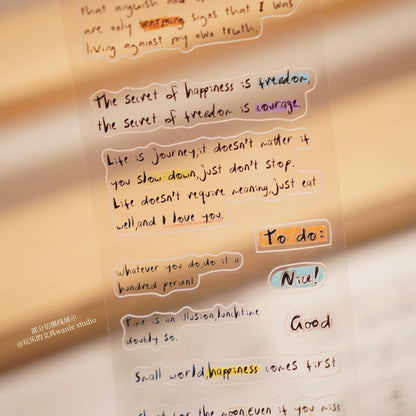 that anguish and
are only warning signs that I was
living against my own truth.
The secret of happiness is freedom,
the secret of freedom is courage.
Life is journey,it doesn't matter if
you slow down,just don't stop.
Life doesn't require meaning,just eat
well,and I love you.
To do:
Whatever you do,do it a
hundred percent
Nice!
Time is an illusion,lunchtime
doubly so.
Good
Small world,happiness comes first
部分切割线展示
@玩乐的文具wanle studio
for the moon.Even if you miss